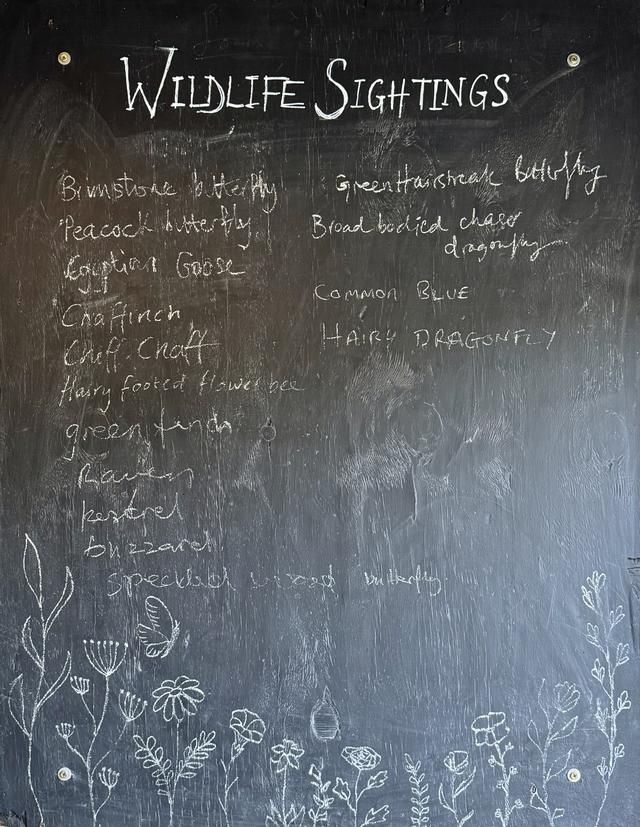 WILDLIFE SIGHTINGS
Brimstone butterfly
Peacock butterfly
Egyptian Goose
Chaffinch
Chiff Chaff
Hairy footed flower bee
green finch
Raven
kestrel
buzzard
speckled wood butterfly
Green Hairstreak Butterfly
Broad bodied chaser
dragonfly
COMMON BLUE
HAIRY DRAGONFLY